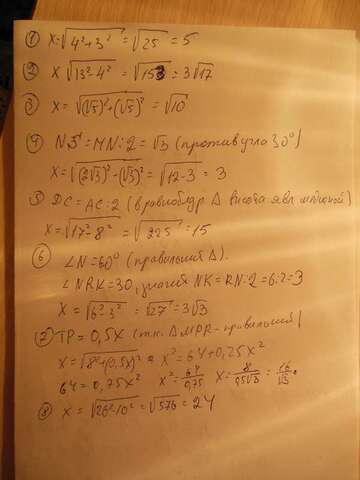 ① x=√4²+3² = √25 = 5
② x √13²-4² = √153 = 3√17
③ x = √(√5)²+(√5)² = √10
④ NS = MN:2 = √3 (против угла 30°)
x=√(2√3)²-(√3)² = √12-3 = 3
5 DC = AC:2 (в равнобедр Δ высота явл медианой)
x=√17²-8² = √225 = 15
⑥ ∠N=60° (правильный Δ).
∠NRK=30, значит NK=RN:2=6:2=3
x = √6²-3² = √27 = 3√3
⑦ TP = 0,5x (т.к. ΔMPR-правильный)
x=√8²+(0,5x)² x²=64+0,25x²
64=0,75x² x²=64/0,75 x=8/0,5√3 = 16/√3
⑧ x = √26²-10² = √576 = 24